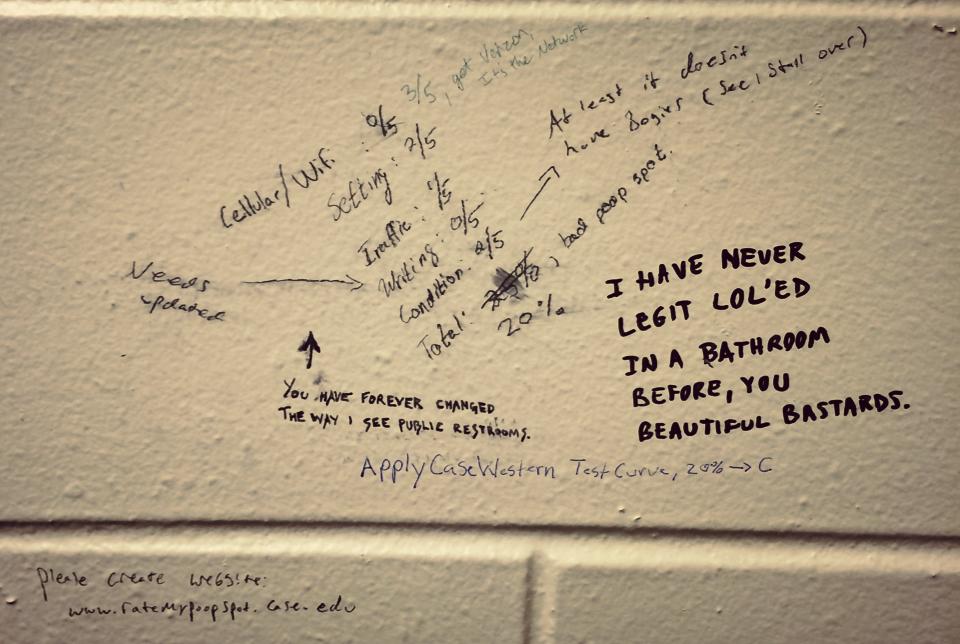 3/5, get Verizon,
It's the Network
Cellular/Wifi : 0/5
Setting : 2/5
Traffic : 1/5
Writing : 0/5
Condition : 2/5
Total: 20%, bad poop spot.
At least it doesn't
have Bogies (see 1 stall over)
Needs
updated
I HAVE NEVER
LEGIT LOL'ED
IN A BATHROOM
BEFORE, YOU
BEAUTIFUL BASTARDS.
YOU HAVE FOREVER CHANGED
THE WAY I SEE PUBLIC RESTROOMS.
Apply Case Western Test Curve, 20% → C
please create website:
www.rateMypoopspot.case.edu